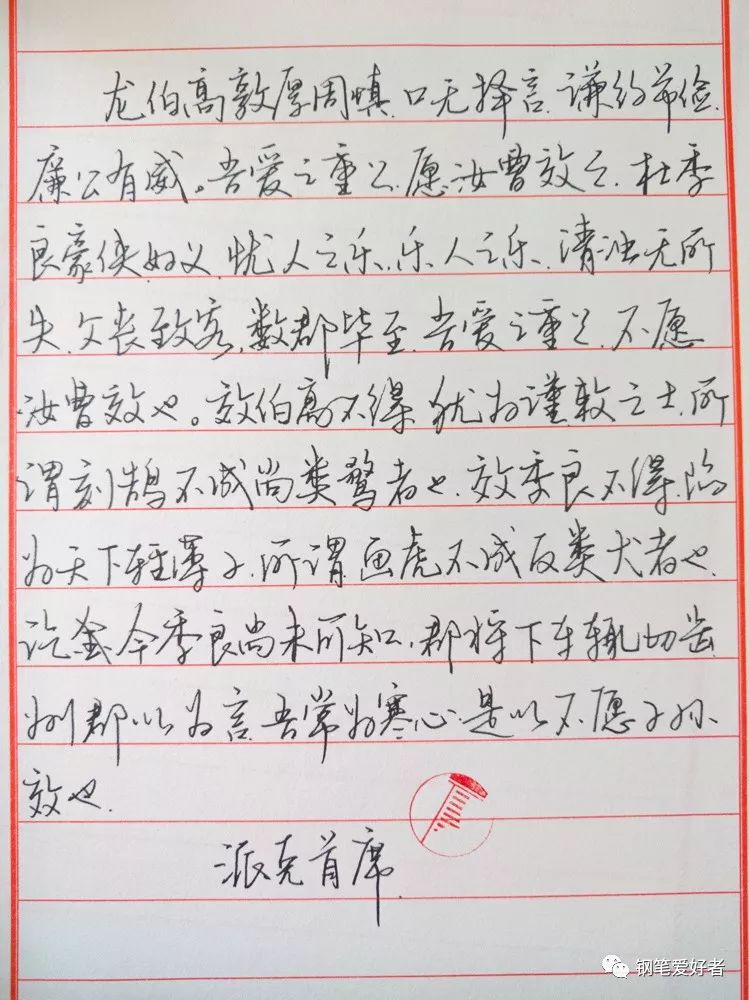 龙伯高敦厚周慎.口无择言.谦约节俭.
廉公有威。吾爱之重之.愿汝曹效之.杜季
良豪侠好义.忧人之乐.乐人之乐.清浊无所
失.父丧致客,数郡毕至.吾爱之重之.不愿
汝曹效也。效伯高不得.犹为谨敕之士.所
谓刻鹄不成尚类鹜者也.效季良不得.陷
为天下轻薄子.所谓画虎不成反类犬者也.
讫今季良尚未可知.郡将下车辄切齿
州郡以为言.吾常为寒心.是以不愿子孙
效也.
派克首席.
钢笔爱好者